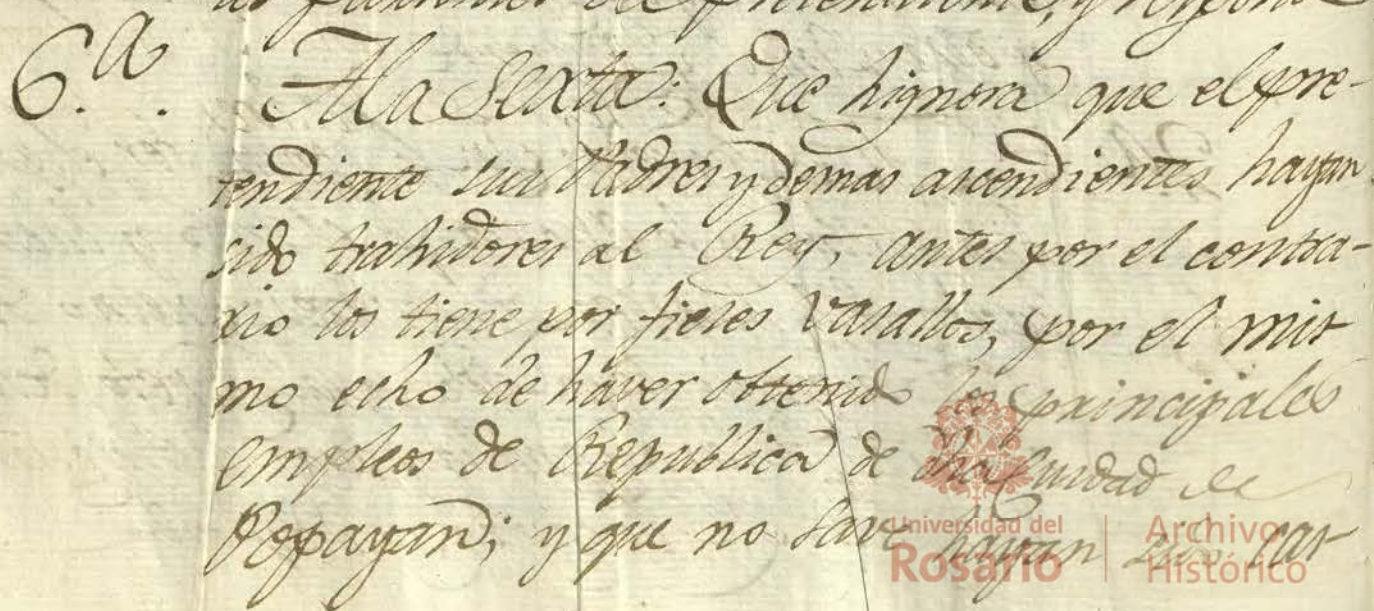 pretendiente, y responde
6.a. A la Sexta: Que hignora que el pre-
tendiente sus Padres y demas ascendientes hayan
sido trahidores al Rey, antes por el contra-
rio los tiene por fieles Vasallos, por el mis
mo echo de haver obtenido los principales
empleos de Republica de dha Ciudad de
Popayan; y que no save hayan sido cas
Universidad del Rosario | Archivo Histórico